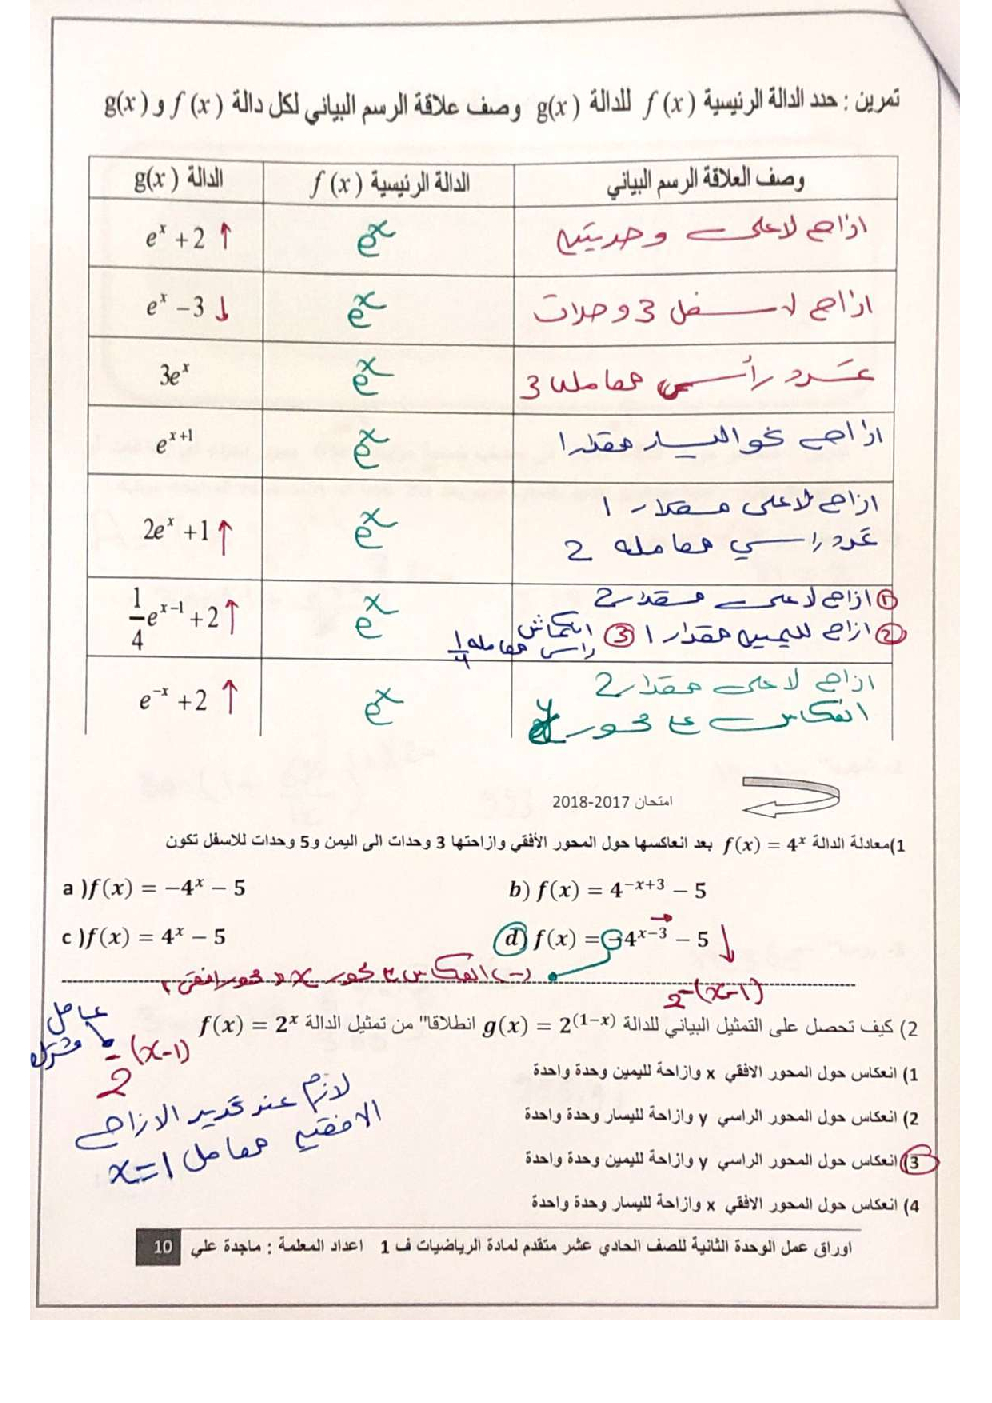 تمرين : حدد الدالة الرئيسية f (x) للدالة g(x) وصف علاقة الرسم البياني لكل دالة f (x) و g(x)
وصف العلاقة الرسم البياني | الدالة الرئيسية f (x) | الدالة g(x)
ازاح لاعلى وحديتيه | e^x | e^x + 2 ↑
ازاح لاسفل 3 وحدات | e^x | e^x − 3 ↓
تمدد رأسي معامله 3 | e^x | 3e^x
ازاحه نحو اليسار مقدار 1 | e^x | e^{x+1}
ازاح لاعلى مقدار 1 | e^x | 2e^x + 1 ↑
تمدد راسي معامله 2
① ازاح لاعلى مقدار 2 | e^x | \frac{1}{4}e^{x−1} + 2 ↑
② ازاح لليمين مقدار 1 ③ انكماش
راسي معامله \frac{1}{4}
ازاح لاعلى مقدار 2 | e^x | e^{−x} + 2 ↑
انعكاس ع محور y
امتحان 2017-2018
1)معادلة الدالة f(x) = 4^x بعد انعاكسها حول المحور الأفقي وازاحتها 3 وحدات الى اليمن و5 وحدات للاسفل تكون
a )f(x) = −4^x − 5
b) f(x) = 4^{−x+3} − 5
c )f(x) = 4^x − 5
d) f(x) = −4^{x−3} − 5 ↓
(-) انعكاس ع محور x محور افقي
2^{-(x-1)}
2) كيف تحصل على التمثيل البياني للدالة g(x) = 2^{(1−x)} انطلاقا" من تمثيل الدالة f(x) = 2^x
عامل
مشترك
2^{-(x-1)}
1) انعكاس حول المحور الافقي x وازاحة لليمين وحدة واحدة
2) انعكاس حول المحور الراسي y وازاحة لليسار وحدة واحدة
3) انعكاس حول المحور الراسي y وازاحة لليمين وحدة واحدة
4) انعكاس حول المحور الافقي x وازاحة لليسار وحدة واحدة
لازم عند تحديد الازاحه
الافقيه معامل x=1
اوراق عمل الوحدة الثانية للصف الحادي عشر متقدم لمادة الرياضيات ف 1 اعداد المعلمة : ماجدة علي 10